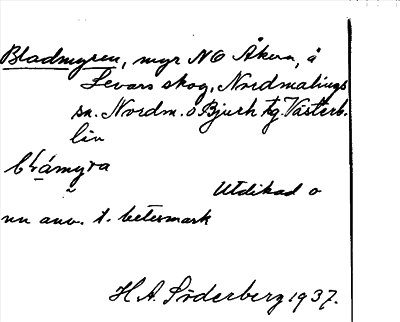 Bladmyren, myr NO Åkern, å
Levars skog, Nordmalings
sn. Nordm. o Bjurh. tg. Västerb.
län
Utdikad o
nu anv. t. betesmark
H. A. Söderberg 1937.